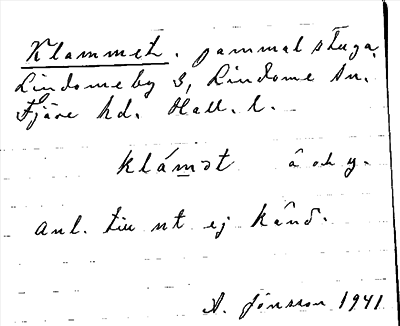 Klammet. gammal stuga,
Lindome by 3, Lindome sn.
Fjäre hd. Hall. l.
klám̲ət â och y.
Anl. till nt ej känd.
A. Jönsson 1941